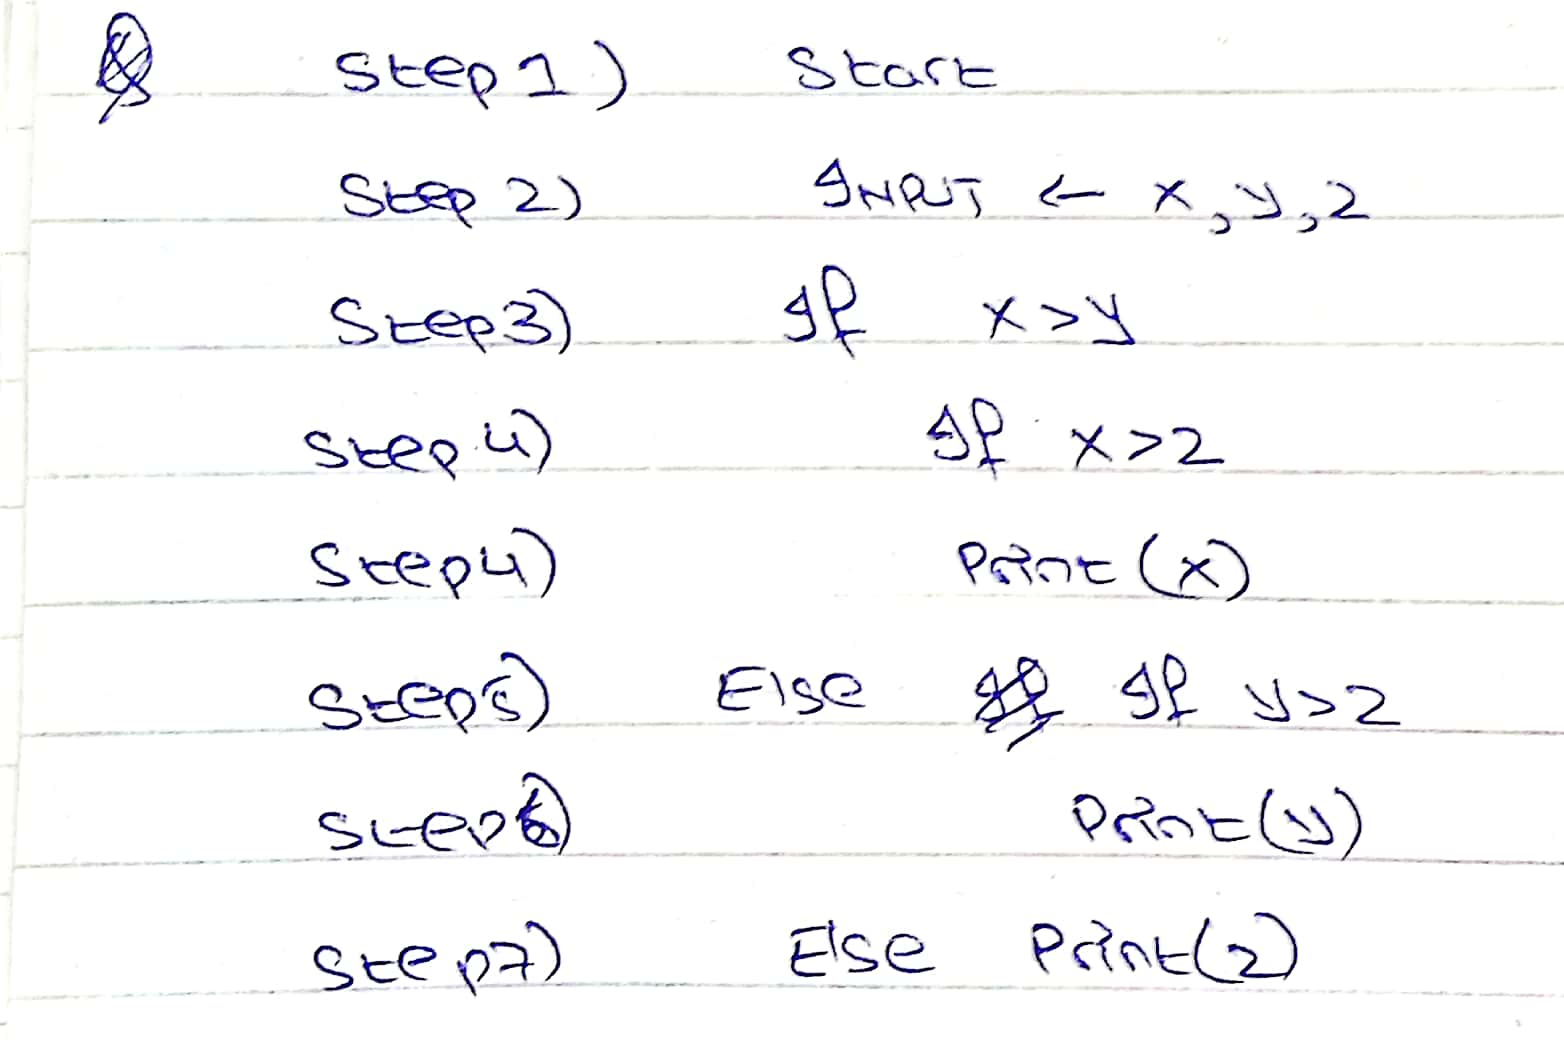 Step 1) Start
Step 2) INPUT ← x, y, z
Step 3) If x>y
Step 4) If x>z
Step 4) Print (x)
Step 5) Else If y>z
Step 6) Print (y)
Step 7) Else Print(z)